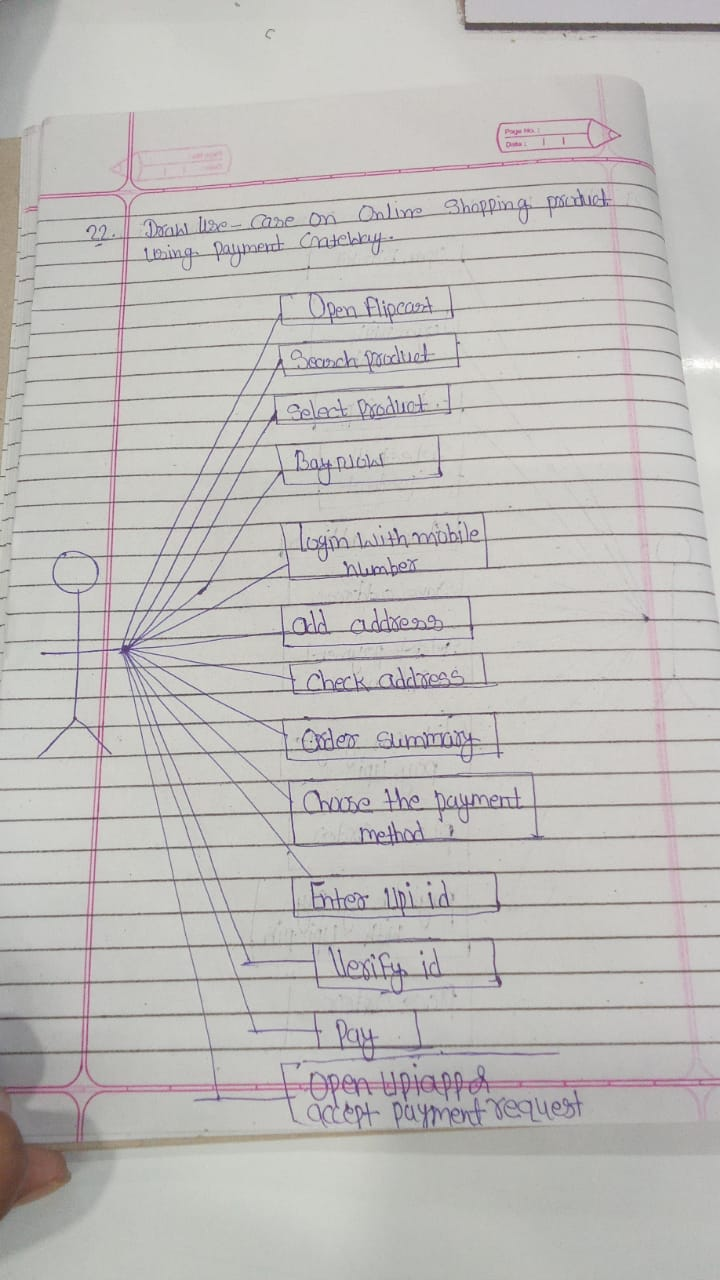 Page No. :
Date :
22. Draw Use-Case on Online Shopping product
Using Payment
Open Flipcart
Search product
Select Product
Bay Now
Login with mobile
number
add address
Check address
Order summary
Choose the payment
method
Enter Upi id
Verify id
Pay
Open Upi app &
accept payment request